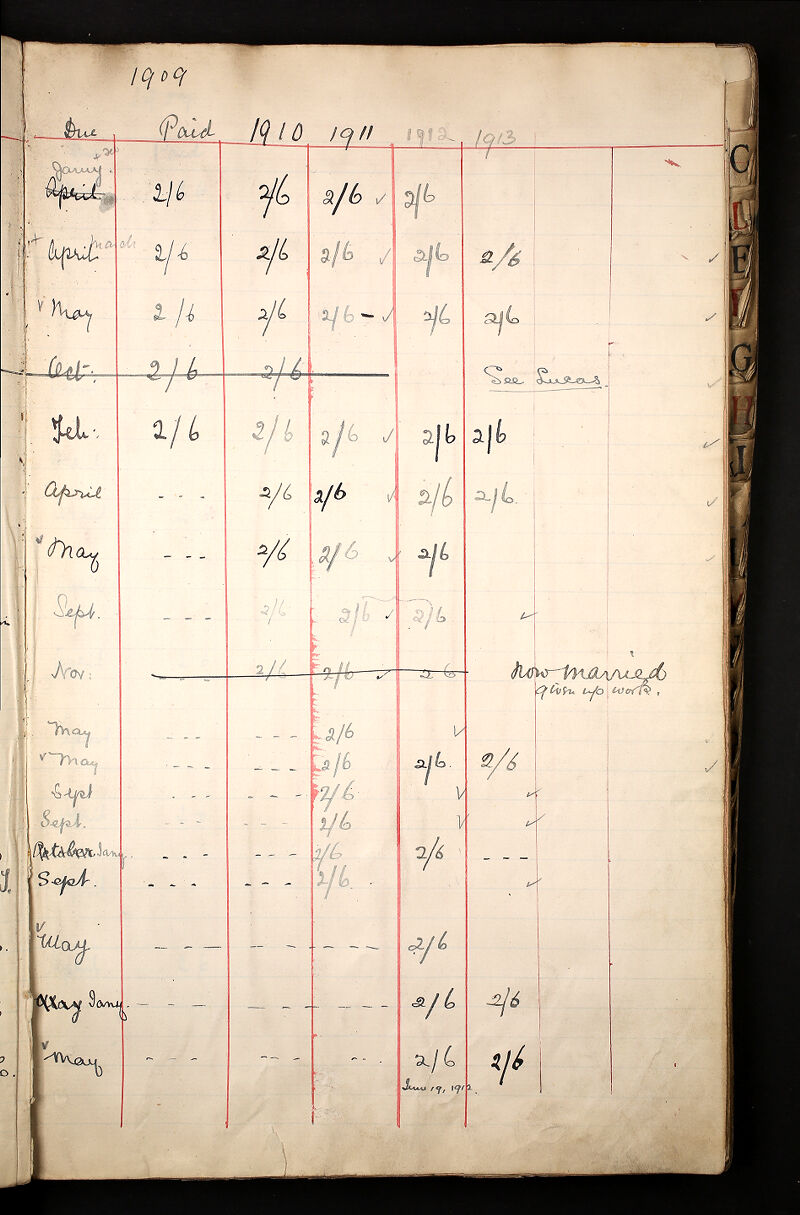 1909
Due Paid 1910 1911 1912 1913
Jany.
April 2/6 2/6 2/6 ✓ 2/6
April March 2/6 2/6 2/6 ✓ 2/6 2/6 ✓
✓ May 2/6 2/6 2/6 - ✓ 2/6 2/6 ✓
Oct: 2/6 2/6 See Lucas. ✓
Feb: 2/6 2/6 2/6 ✓ 2/6 2/6 ✓
April - - - 2/6 2/6 ✓ 2/6 2/6 ✓
✓ May - - - 2/6 2/6 ✓ 2/6 ✓
Sept. - - - 2/6 2/6 ✓ 2/6 ✓
Nov: 2/6 2/6 ✓ 2/6 now married
given up work.
May - - - - - - 2/6 ✓
✓ May - - - - - - 2/6 2/6 2/6 ✓
Sept - - - - - - 2/6 ✓ ✓
Sept. - - - - - - 2/6 ✓ ✓
October Jany. - - - - - - 2/6 2/6 - - -
Sept. - - - - - - 2/6 ✓
✓ May - - - - - - - - - 2/6
May Jany. - - - - - - - - - 2/6 2/6
✓ May - - - - - - - - - 2/6 2/6
June 19, 1912.
C
E
G
H
I
L